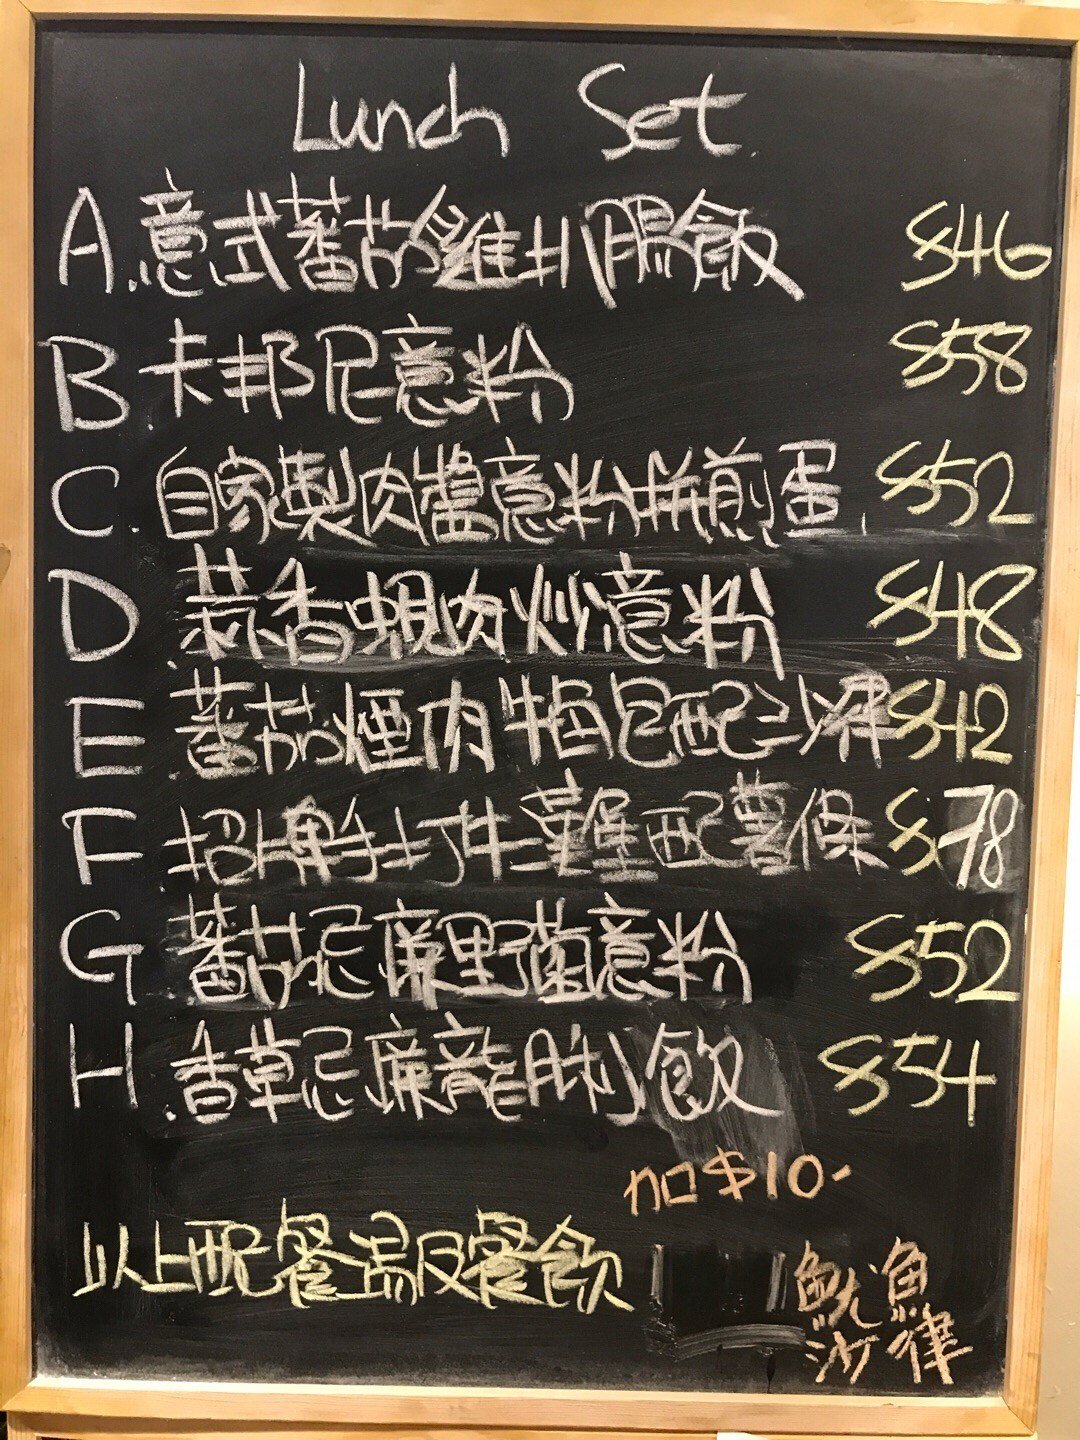 Lunch Set
A. 意式蕃茄雞扒腸飯 $46
B. 卡邦尼意粉 $58
C. 自家製肉醬意粉拼煎蛋 $52
D. 蒜香蜆肉炒意粉 $48
E. 蕃茄煙肉 尼配沙律 $42
F. 招牌手打牛漢堡配薯條 $78
G. 蕃茄忌廉野菌意粉 $52
H. 香草忌廉龍脷飯 $54
加$10-
以上配餐湯及餐飲
魷魚
沙律